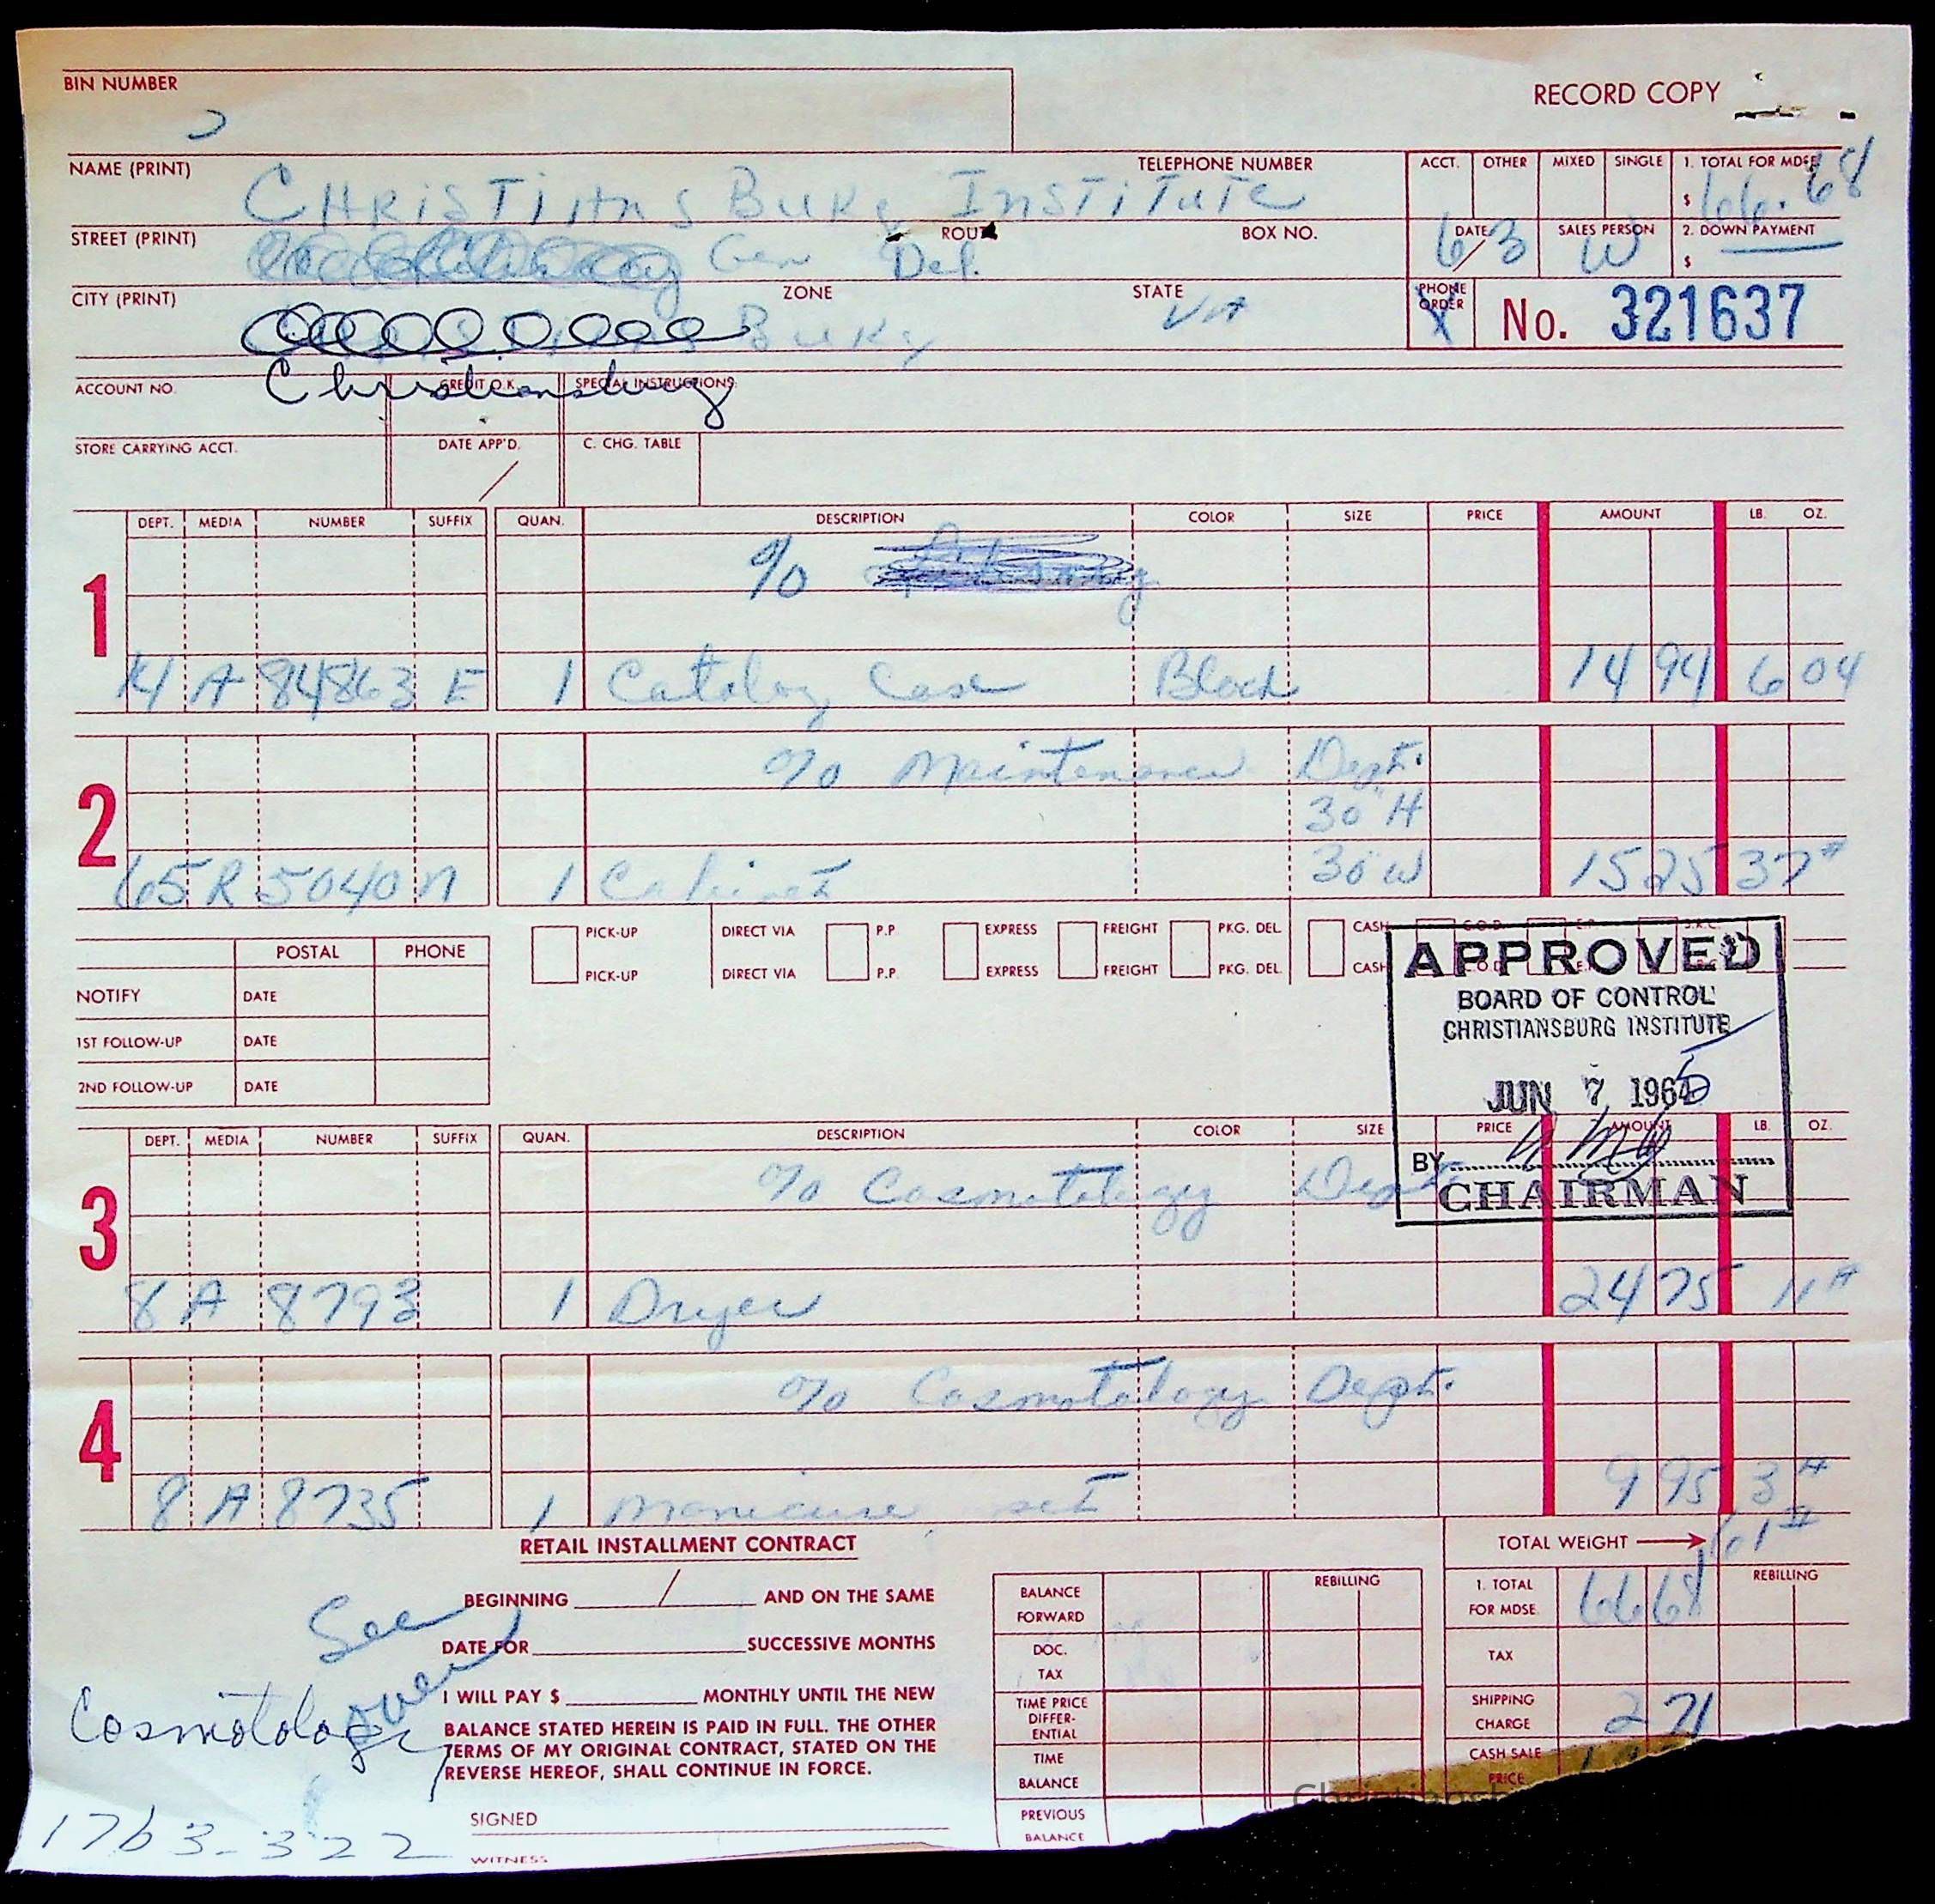 BIN NUMBER
RECORD COPY
NAME (PRINT) CHRISTIANSBURG INSTITUTE TELEPHONE NUMBER
ACCT. OTHER MIXED SINGLE 1. TOTAL FOR MDSE $ 66.68
STREET (PRINT) Gen Del. ROUTE BOX NO.
DATE 6/3 SALES PERSON W 2. DOWN PAYMENT $
CITY (PRINT) Burg ZONE STATE VA
PHONE ORDER X No. 321637
Christiansburg
ACCOUNT NO. CREDIT O.K. SPECIAL INSTRUCTIONS
STORE CARRYING ACCT. DATE APP'D. / C. CHG. TABLE
DEPT. MEDIA NUMBER SUFFIX QUAN. DESCRIPTION COLOR SIZE PRICE AMOUNT LB. OZ.
1
%
14 A 84863 E 1 Catalog Case Black 14 94 6 04
2
% Maintenance Dept.
30" H
65 R 5040 N 1 Cabinet 30 W 15 25 37#
PICK-UP DIRECT VIA P.P. EXPRESS FREIGHT PKG. DEL. CASH C.O.D. E.P.
PICK-UP DIRECT VIA P.P. EXPRESS FREIGHT PKG. DEL. CASH C.O.D.
POSTAL PHONE
NOTIFY DATE
1ST FOLLOW-UP DATE
2ND FOLLOW-UP DATE
APPROVED
BOARD OF CONTROL
CHRISTIANSBURG INSTITUTE
JUN 7 1965
BY
CHAIRMAN
DEPT. MEDIA NUMBER SUFFIX QUAN. DESCRIPTION COLOR SIZE PRICE AMOUNT LB. OZ.
3
% Cosmotology Dept
8 A 8793 1 Dryer 24 75 11#
4
% Cosmotology Dept.
8 A 8735 1 Manicure set 9 95 3#
RETAIL INSTALLMENT CONTRACT
TOTAL WEIGHT 61#
BEGINNING / AND ON THE SAME
DATE FOR SUCCESSIVE MONTHS
I WILL PAY $ MONTHLY UNTIL THE NEW
BALANCE STATED HEREIN IS PAID IN FULL. THE OTHER
TERMS OF MY ORIGINAL CONTRACT, STATED ON THE
REVERSE HEREOF, SHALL CONTINUE IN FORCE.
SIGNED
WITNESS
See over
Cosmotology
1763-322
REBILLING
BALANCE FORWARD
DOC. TAX
TIME PRICE DIFFER-ENTIAL
TIME BALANCE
PREVIOUS BALANCE
REBILLING
1. TOTAL FOR MDSE. 66 68
TAX
SHIPPING CHARGE 2 71
CASH SALE PRICE